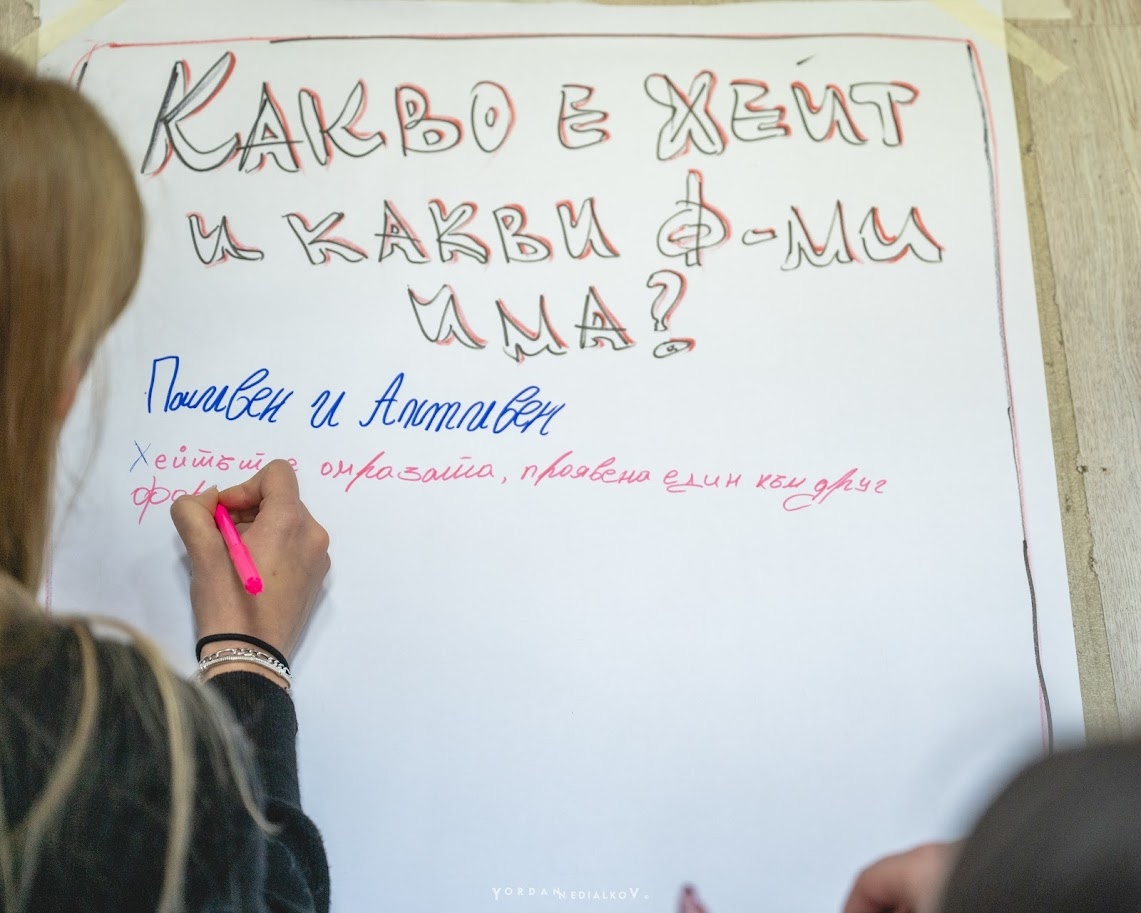 КАКВО Е ХЕЙТ
И КАКВИ Ф-МИ
ИМА?
и
Хейтът е омразата, проявена един към друг
YORDAN NEDIALKOV.